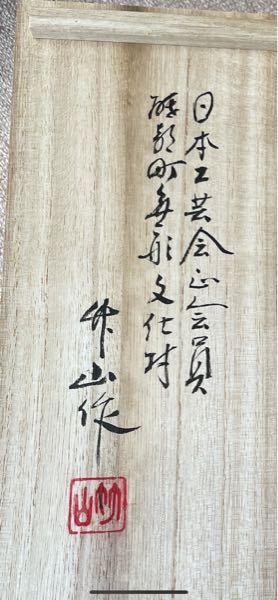 日本工芸会正会員
砥部町無形文化財
竹山作
竹山